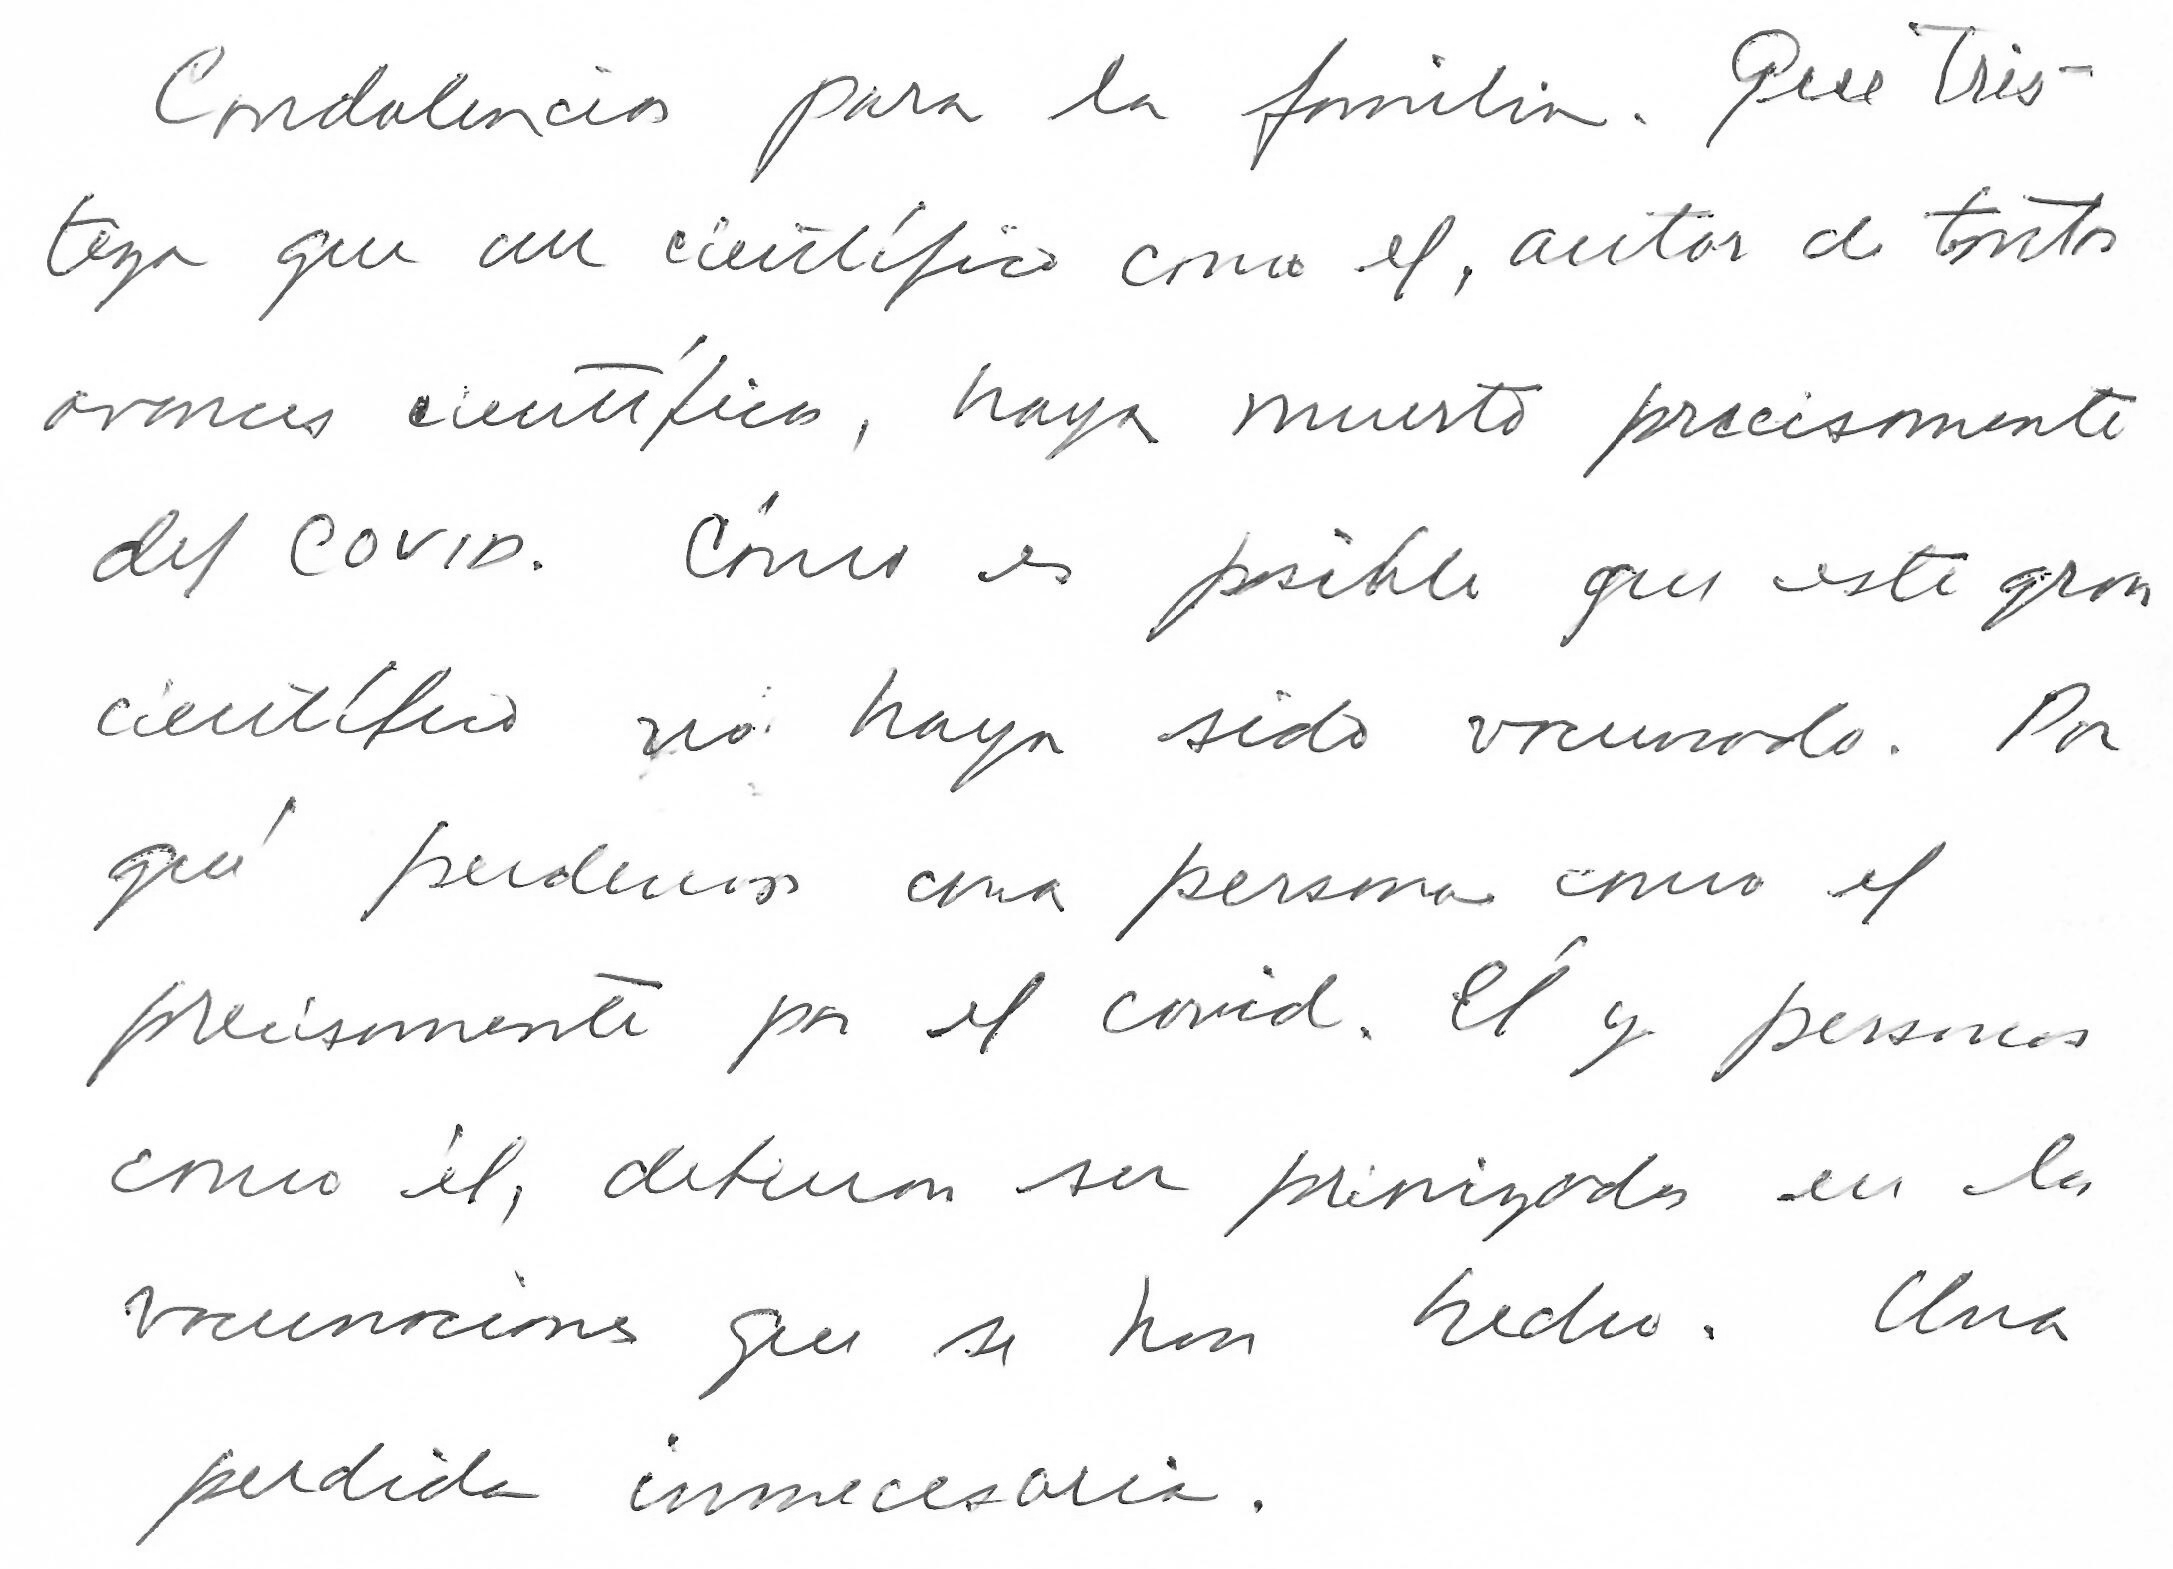 Condolencias para la familia. Que tris-
teza que un científico como el, autor de tantos
avances científicos, haya muerto precisamente
del COVID. Cómo es posible que este gran
científico no haya sido vacunado. Por
qué perdemos una persona como el
precisamente por el covid. Él y personas
como él, debieron ser priorizados en las
vacunaciones que se han hecho. Una
perdida innecesaria.